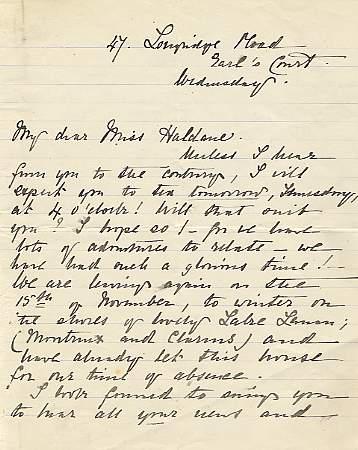 47. Longridge Road
Earl's Court.
Wednesday.
My dear Miss Haldane.
Unless I hear
from you to the contrary, I will
expect you to tea tomorrow, Thursday,
at 4 o'clock! Will that suit
you? I hope so! - for we have
lots of adventures to relate - we
have had such a glorious time! -
We are leaving again on the
15th of November, to winter on
the shores of lovely Lake Leman;
(Montreux and Clarens) and
have already let this house
for our time of absence.
I look forward to seeing you
to hear all your news and